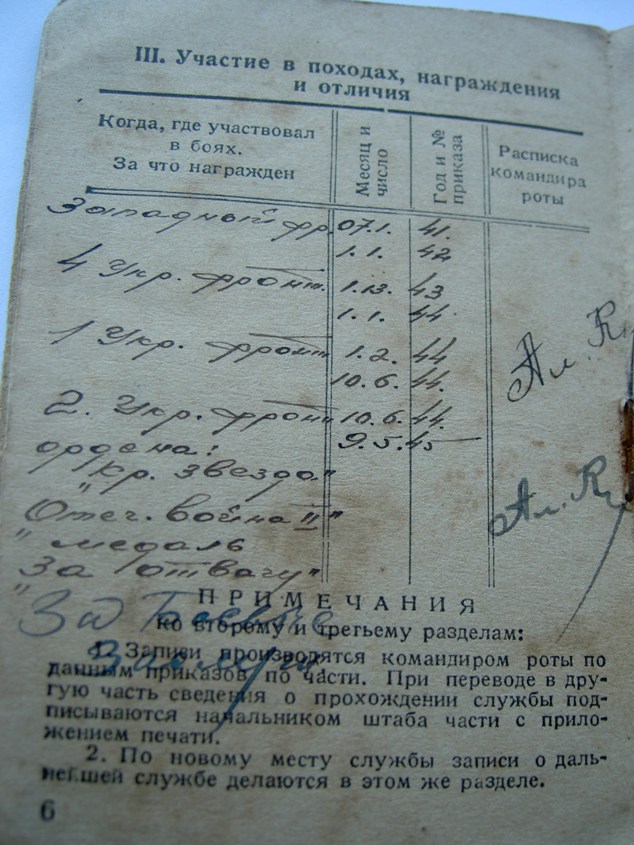 III. Участие в походах, награждения
и отличия
Когда, где участвовал
в боях.
За что награжден
Месяц и
число
Год и №
приказа
Расписка
командира
роты
Западный фр. 07.1. 41.
1.1. 42
4 Укр. фронт. 1.13. 43
1.1. 44
1 Укр. фронт 1.2. 44
10.6. 44.
2. Укр. фронт 10.6. 44.
9.5.45
ордена:
"Кр. звезда"
Отеч. война II"
"медаль
За отвагу"
"За боевые
ПРИМЕЧАНИЯ
ко второму и третьему разделам:
1. Записи производятся командиром роты по
данным приказов по части. При переводе в дру-
гую часть сведения о прохождении службы под-
писываются начальником штаба части с прило-
жением печати.
2. По новому месту службы записи о даль-
нейшей службе делаются в этом же разделе.
6